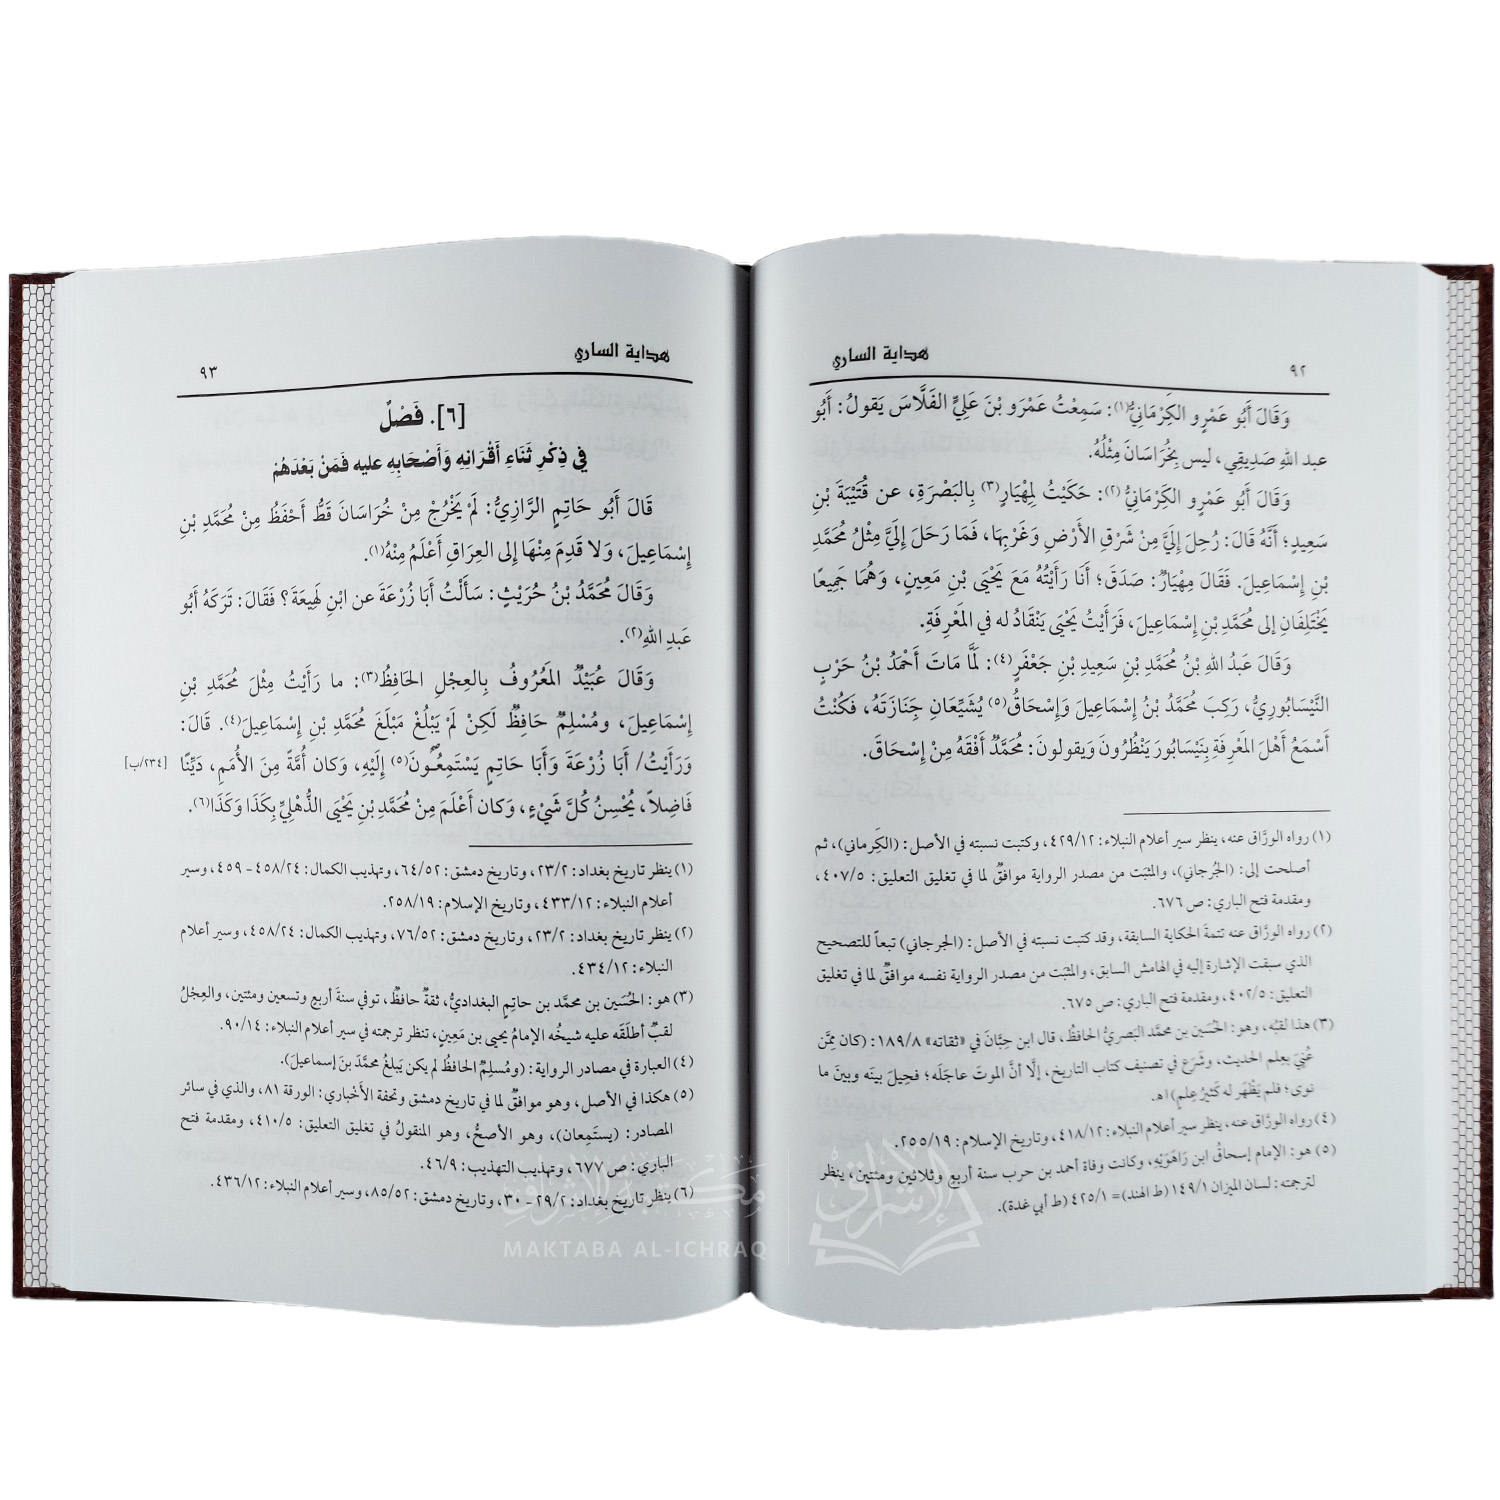 ٩٢
هداية الساري
وَقَالَ أَبُو عَمْرٍو الكِرْمَانِيُّ(١): سَمِعْتُ عَمْرَو بْنَ عَلِيٍّ الفَلَّاسَ يَقولُ: أَبُو
عبد اللهِ صَدِيقِي، ليس بِخُرَاسَانَ مِثْلُهُ.
وَقَالَ أَبُو عَمْرٍو الكَرْمَانِيُّ(٢): حَكَيْتُ لِمِهْيَارٍ(٣) بِالبَصْرَةِ، عن قُتَيْبَةَ بْنِ
سَعِيدٍ؛ أَنَّهُ قَالَ: رُحِلَ إِلَيَّ مِنْ شَرْقِ الأَرْضِ وَغَرْبِهَا، فَمَا رَحَلَ إِلَيَّ مِثْلُ مُحَمَّدِ
بْنِ إِسْمَاعِيلَ. فَقَالَ مِهْيَارٌ: صَدَقَ؛ أَنَا رَأَيْتُهُ مَعَ يَحْيَى بْنِ مَعِينٍ، وَهُمَا جَمِيعًا
يَخْتَلِفَانِ إلى مُحَمَّدِ بْنِ إِسْمَاعِيلَ، فَرَأَيْتُ يَحْيَى يَنْقَادُ له في المَعْرِفَةِ.
وَقَالَ عَبدُ اللهِ بْنُ مُحَمَّدِ بْنِ سَعِيدِ بْنِ جَعْفَرٍ(٤): لَمَّا مَاتَ أَحْمَدُ بْنُ حَرْبٍ
النَّيْسَابُورِيُّ، رَكِبَ مُحَمَّدُ بْنُ إِسْمَاعِيلَ وَإِسْحَاقُ(٥) يُشَيِّعَانِ جَنَازَتَهُ، فَكُنْتُ
أَسْمَعُ أَهْلَ المَعْرِفَةِ بِنَيْسَابُورَ يَنْظُرُونَ وَيَقولونَ: مُحَمَّدٌ أَفْقَهُ مِنْ إِسْحَاقَ.
(١) رواه الورَّاق عنه، ينظر سير أعلام النبلاء: ٤٢٩/١٢، وكتبت نسبته في الأصل: (الكَرماني)، ثم
أصلحت إلى: (الجُرجاني)، والمثبَت من مصدر الرواية موافقٌ لما في تغليق التعليق: ٤٠٧/٥،
ومقدمة فتح الباري: ص ٦٧٦.
(٢) رواه الورَّاق عنه تتمةَ الحكاية السابقة، وقد كتبت نسبته في الأصل: (الجرجاني) تبعاً للتصحيح
الذي سبقت الإشارة إليه في الهامش السابق، والمثبَت من مصدر الرواية نفسه موافقٌ لما في تغليق
التعليق: ٤٠٢/٥، ومقدمة فتح الباري: ص ٦٧٥.
(٣) هذا لقبُه، وهو: الحُسَين بن محمَّد البَصريُّ الحافظُ، قال ابن حِبَّانَ في «ثقاته» ١٨٩/٨: (كان مِمَّن
عُنِيَ بعِلم الحديث، وشَرَع في تصنيف كتاب التاريخ، إلَّا أنَّ الموتَ عاجَلَه؛ فحِيلَ بينَه وبينَ ما
نوى؛ فلم يَظْهَر له كَثيرُ عِلمٍ) اهـ.
(٤) رواه الورَّاق عنه، ينظر سير أعلام النبلاء: ٤١٨/١٢، وتاريخ الإسلام: ٢٥٥/١٩.
(٥) هو: الإمام إسحاقُ ابن رَاهَوَيْهِ، وكانت وفاة أحمد بن حرب سنة أربع وثلاثين ومئتين، ينظر
لترجمته: لسان الميزان ١٤٩/١ (ط الهند)= ٤٢٥/١ (ط أبي غدة).
هداية الساري
٩٣
[٦]. فَصْلٌ
فِي ذِكْرِ ثَنَاءِ أَقْرَانِه وَأَصْحَابِهِ عليه فَمَنْ بَعْدَهُمْ
قَالَ أَبُو حَاتِمٍ الرَّازِيُّ: لَمْ يَخْرُجْ مِنْ خُرَاسَانَ قَطُّ أَحْفَظُ مِنْ مُحَمَّدِ بْنِ
إِسْمَاعِيلَ، وَلَا قَدِمَ مِنْهَا إلى العِرَاقِ أَعْلَمُ مِنْهُ(١).
وَقَالَ مُحَمَّدُ بْنُ حُرَيْثٍ: سَأَلْتُ أَبَا زُرْعَةَ عن ابْنِ لَهِيعَةَ؟ فَقَالَ: تَرَكَهُ أَبُو
عَبدِ اللهِ(٢).
وَقَالَ عُبَيْدٌ المَعْرُوفُ بِالعِجْلِ الحَافِظُ(٣): ما رَأَيْتُ مِثْلَ مُحَمَّدِ بْنِ
إِسْمَاعِيلَ، ومُسْلِمٌ حَافِظٌ لَكِنْ لَمْ يَبْلُغْ مَبْلَغَ مُحَمَّدِ بْنِ إِسْمَاعِيلَ(٤). قَالَ:
وَرَأَيْتُ/ أَبَا زُرْعَةَ وَأَبَا حَاتِمٍ يَسْتَمِعُونَ(٥) إِلَيْهِ، وَكان أُمَّةً مِنَ الأُمَمِ، دَيِّنًا [٢٣٤/ب]
فَاضِلاً، يُحْسِنُ كُلَّ شَيْءٍ، وَكان أَعْلَمَ مِنْ مُحَمَّدِ بْنِ يَحْيَى الذُّهْلِيِّ بِكَذَا وَكَذَا(٦).
(١) ينظر تاريخ بغداد: ٢٣/٢، وتاريخ دمشق: ٦٤/٥٢، وتهذيب الكمال: ٤٥٨/٢٤- ٤٥٩، وسير
أعلام النبلاء: ٤٣٣/١٢، وتاريخ الإسلام: ٢٥٨/١٩.
(٢) ينظر تاريخ بغداد: ٢٣/٢، وتاريخ دمشق: ٧٦/٥٢، وتهذيب الكمال: ٤٥٨/٢٤، وسير أعلام
النبلاء: ٤٣٤/١٢.
(٣) هو: الحُسَين بن محمَّد بن حاتِمٍ البغداديُّ، ثقةٌ حافظٌ، توفي سنةَ أربعٍ وتسعين ومئتين، والعِجْلُ
لقبٌ أطلَقَه عليه شيخُه الإمامُ يحيى بن مَعِينٍ، تنظر ترجمته في سير أعلام النبلاء: ٩٠/١٤.
(٤) العبارة في مصادر الرواية: (ومُسلِمٌ الحافظُ لم يكن يَبلغُ محمَّدَ بنَ إسماعيلَ).
(٥) هكذا في الأصل، وهو موافقٌ لما في تاريخ دمشق وتحفة الأخباري: الورقة ٨١، والذي في سائر
المصادر: (يستَمِعان)، وهو الأصحُّ، وهو المنقولُ في تغليق التعليق: ٤١٠/٥، ومقدمة فتح
الباري: ص ٦٧٧، وتهذيب التهذيب: ٤٦/٩.
(٦) ينظر تاريخ بغداد: ٢٩/٢- ٣٠، وتاريخ دمشق: ٨٥/٥٢، وسير أعلام النبلاء: ٤٣٦/١٢.
مكتبة الإشراق
الإشراق
MAKTABA AL-ICHRAQ